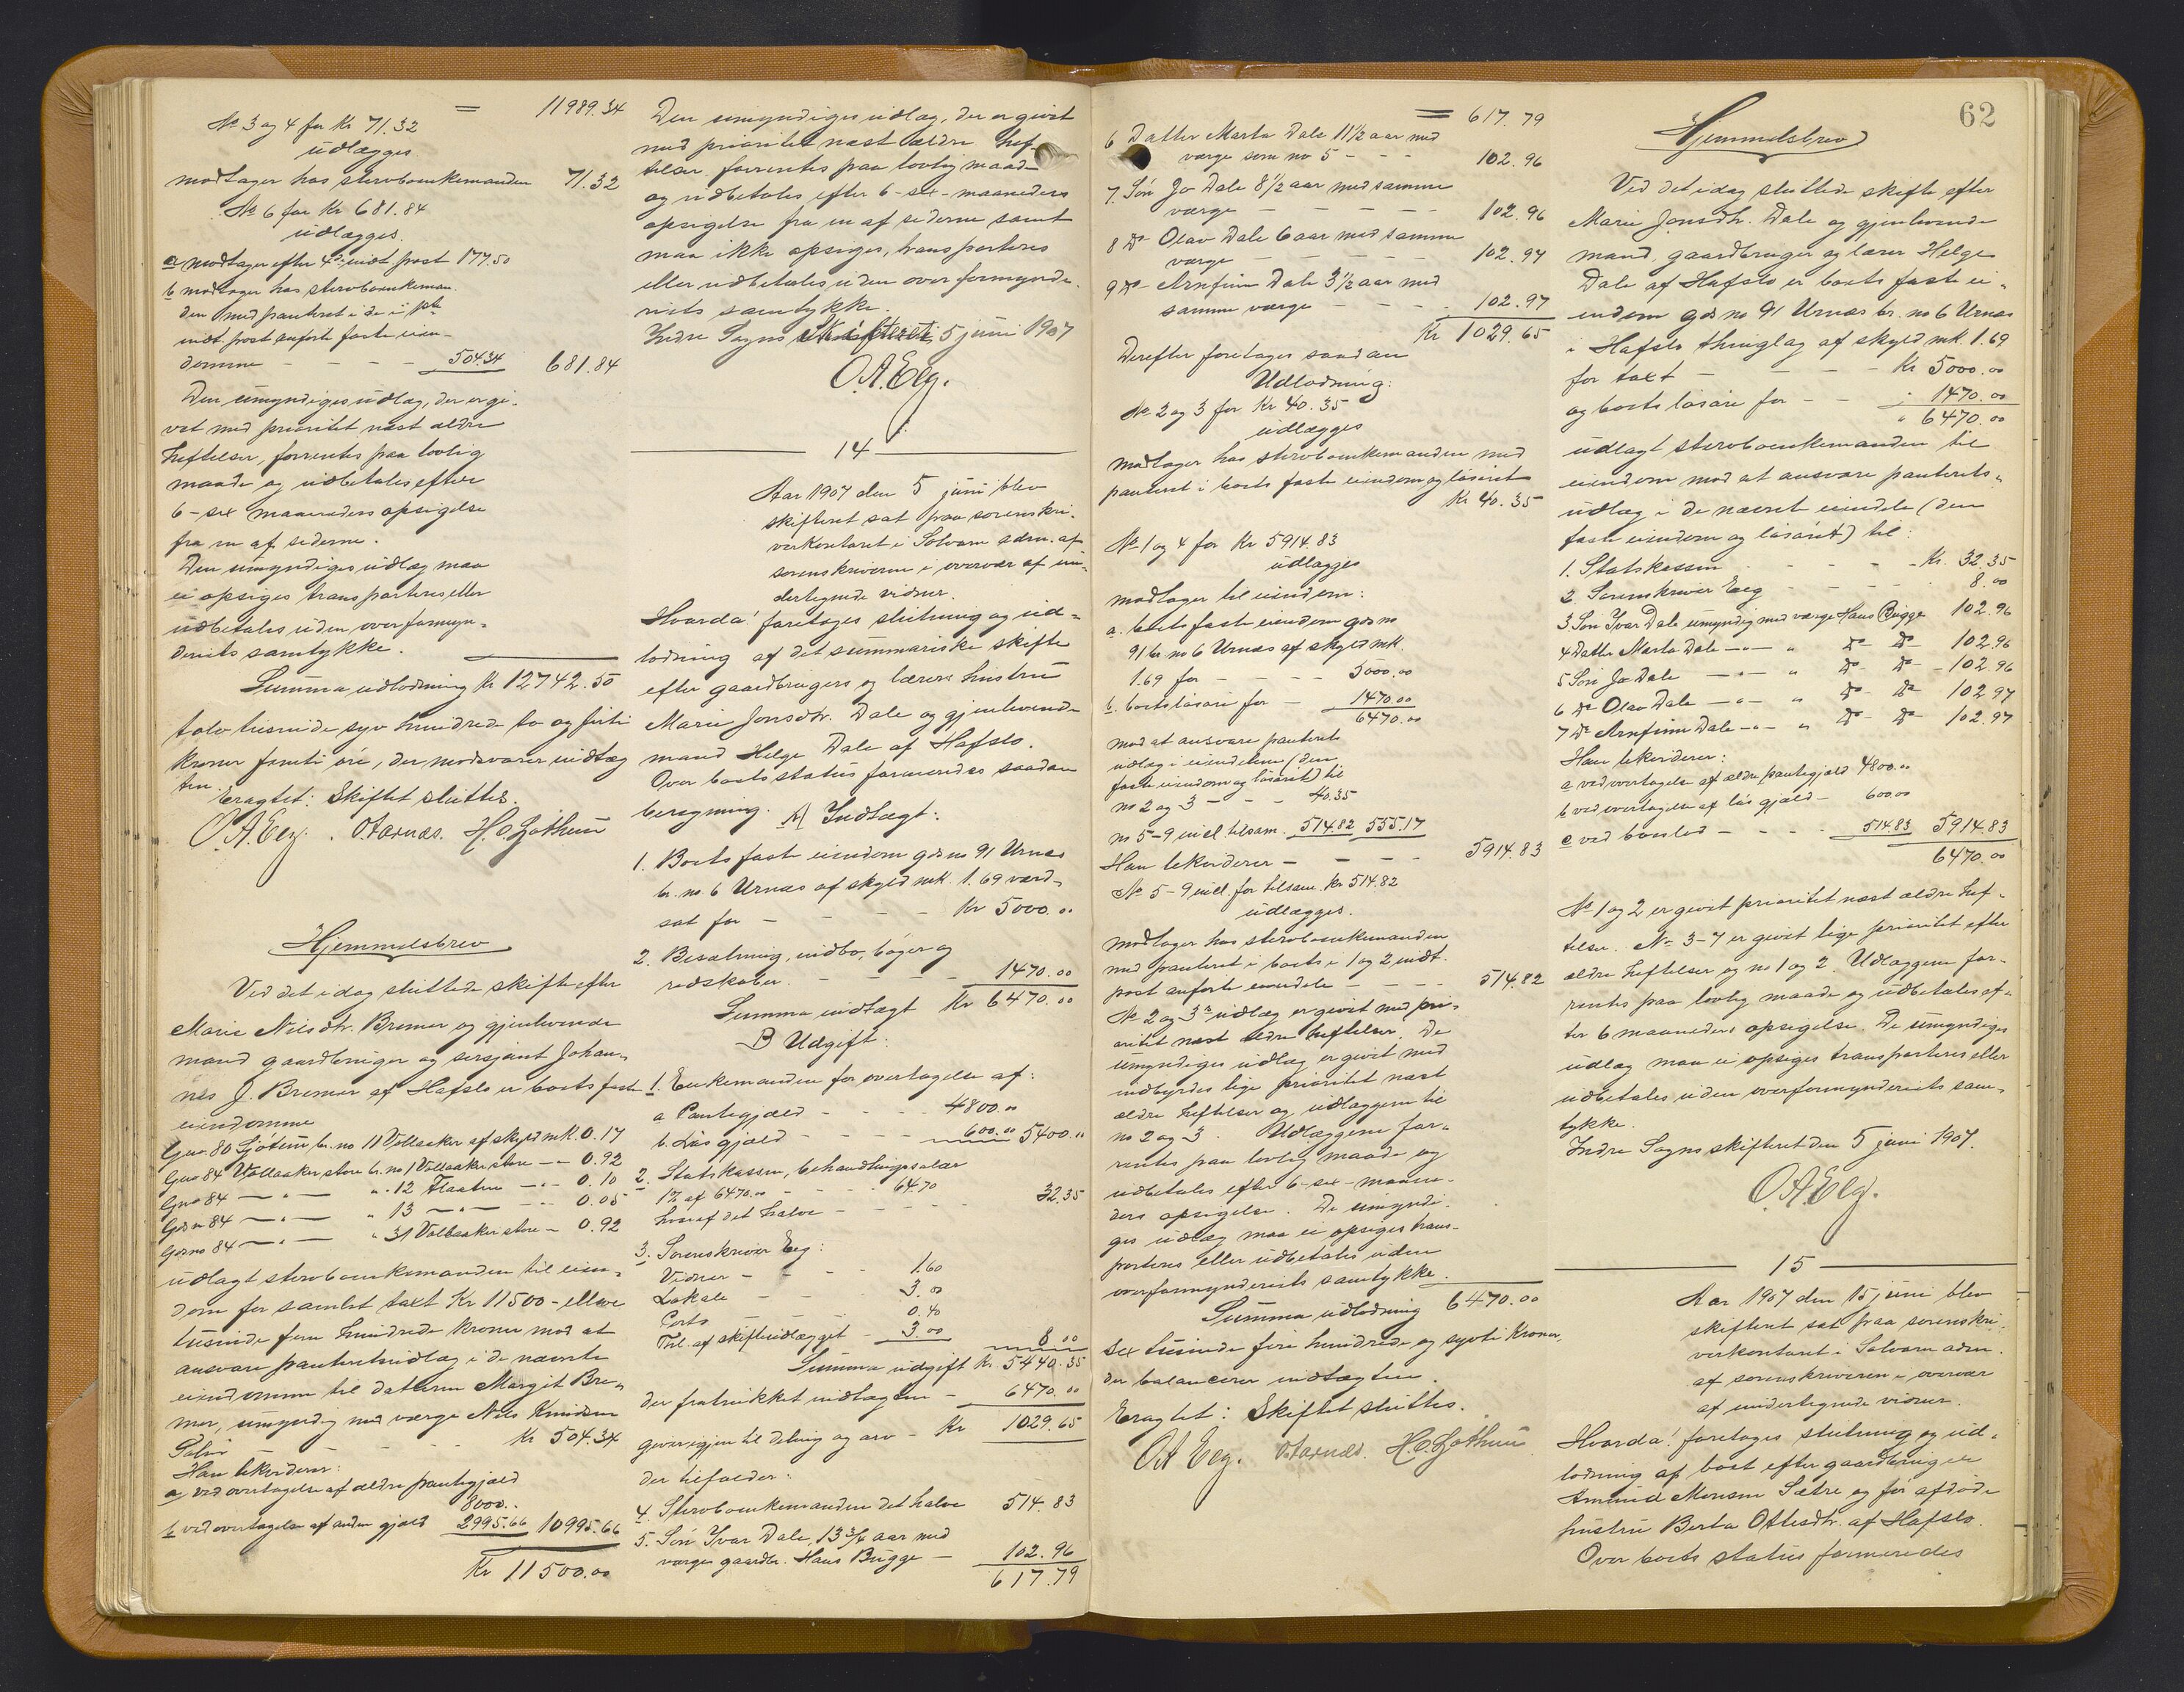 = 11989.34
No 3 og 4 for Kr 71.32
udlægges
modtager hos sterboenkemanden 71.32
No 6 for Kr 681.84
udlægges.
a modtager efter 4de indt post 177.50
b modtager hos sterboenkeman
den med panteret i de i
indt. post anførte faste eien-
domme - - - 504.34 681.84
Den umyndiges udlæg, der er gi-
vet med prioritet næst ældre
heftelser, forrentes paa lovlig
maade og udbetales efter
6 - sex maaneders opsigelse
fra en af siderne.
Den umyndiges udlæg maa
ei opsiges transporteres eller
udbetales uden overformyn-
deriets samtykke.
Summa udlodning Kr 12742.50
tolv tusinde syv hundrede to og firti
kroner femti øre, der modsvarer indtæg
ten.
Eragtet: Skiftet sluttes.
O.A. Eeg. O. Farnæs. H.O. Høthun
Hjemmelsbrev
Ved det i dag sluttede skifte efter
Marie Nilsdtr. Bremer og gjenlevende
mand gaardbruger og sersjant Johan-
nes J. Bremer af Hafslo er boets faste
eiendomme
Gno 80 Sjøtun br. no 11 Vollaaker af skyld mk. 0.17
Gno 84 Vollaaker store br. no 1 Vollaaker store - " 0.92
Gno 84 - " - " 12 Flaaten - " - 0.10
Gno 84 - " - " 13 - " - 0.05
Gno 84 - " - " 31 Vollaaker store - 0.92
udlagt sterboenkemanden til eien-
dom for samlet taxt Kr 11500 - elleve
tusinde fem hundrede kroner mod at
ansvare panteretsudlæg i de nævnte
eiendomme til datteren Margit Bre-
mer, umyndig med værge Nils Knudsen
- - - Kr 504.34
Han likviderer:
a ved overtagelse af ældre pantegjæld
8000..
b ved overtagelse af anden gjæld 2995.66 10995.66
Kr 11500.00
Den umyndiges udlæg, der er givet
med prioritet næst ældre hef-
telser forrentes paa lovlig maade
og udbetales efter 6 - sex - maaneders
opsigelse fra en af siderne samt
maa ikke opsiges, transporteres
eller udbetales uden overformynde-
riets samtykke.
Indre Sogns skifteret, 5 juni 1907
O.A. Eeg.
14
Aar 1907 den 5 juni blev
skifteret sat paa sorenskri-
verkontoret i Solvorn adm. af
sorenskriveren i overvær af un-
dertegnede vidner.
Hvorda! foretoges slutning og ud-
lodning af det summariske skifte
efter gaardbrugers og lærers hustru
Marie Jonsdtr. Dale og gjenlevende
mand Helge Dale af Hafslo.
Over boets status formeredes saadan
beregning. A) Indtægt:
1. Boets faste eiendom gds no 91 Urnæs
br. no 6 Urnæs af skyld mk. 1.69 værd-
sat for - - - - Kr 5000.00
2. Besætning, indbo, bøger og
redskaber - - - - 1470.00
Summa indtægt Kr 6470.00
B Udgift:
1. Enkemanden for overtagelse af:
a Pantegjæld - - - 4800.00
b. Løs gjæld - - - 600.00 5400.00
2. Statskassen, behandlingssalær
1% af 6470.00 - - 64.70
hvoraf det halve - - - - 32.35
3. Sorenskriver Eeg:
Vidner - - - 1.60
Lokale - - - 3.00
Porto - - - 0.40
Thl. af skifteudlægget - 3.00 8.00
Summa udgift Kr. 5440.35
der fratrukket indtægten - 6470.00
giver igjen til deling og arv - Kr 1029.65
der tilfalder:
4. Sterboenkemanden det halve 514.83
5. Søn Ivar Dale, 13 3/4 aar med
værge gaardbr. Hans Bugge - 102.96
617.79
= 617.79
6 Datter Marta Dale 11 1/2 aar med
værge som no 5 - - - 102.96
7. Søn Jo Dale 8 1/2 aar med samme
værge - - - - 102.96
8 Do Olav Dale 6 aar med samme
værge - - - - 102.97
9 Do Arnfinn Dale 3 1/2 aar med
samme værge - - - 102.97
Kr 1029.65
Derefter foretoges saadan
Udlodning:
No 2 og 3 for Kr 40.35
udlægges
modtager hos sterboenkemanden med
panteret i boets faste eiendom og løsøret
Kr 40.35
No 1 og 4 for Kr 5914.83
udlægges
modtager til eiendom:
a. boets faste eiendom gds no
91 br. no 6 Urnæs af skyld mk.
1.69 for - - - 5000.00
b. boets løsøre for - 1470.00
6470.00
mod at ansvare panterets
udlæg i eiendelene (den
faste eiendom og løsøret) til
no 2 og 3 - - - 40.35
no 5-9 incl. tilsam. 514.82 555.17
Han likviderer - - - - 5914.83
No 5-9 incl. for tilsam. Kr 514.82
udlægges.
modtager hos sterboenkemanden
med panteret i boets i 1 og 2 indt.
post anførte eiendele - - - - 514.82
No 2 og 3s udlæg er givet med pri-
oritet næst ældre heftelser. De
umyndiges udlæg er givet med
indbyrdes lige prioritet næst
ældre heftelser og udlæggene til
no 2 og 3. Udlæggene for-
rentes paa lovlig maade og
udbetales efter 6 - sex - maane-
ders opsigelse. De umyndi-
ges udlæg maa ei opsiges trans-
porteres eller udbetales uden
overformynderiets samtykke.
Summa udlodning 6470.00
sex tusinde fire hundrede og sytti Kroner,
der balancerer indtægten.
Eragtet: Skiftet sluttes.
O.A. Eeg. O. Farnæs. H.O. Høthun
62
Hjemmelsbrev
Ved det idag sluttede skifte efter
Marie Jonsdtr. Dale og gjenlevende
mand, gaardbruger og lærer Helge
Dale af Hafslo er boets faste ei-
endom gds no 91 Urnæs br. no 6 Urnæs
i Hafslo thinglag af skyld mk. 1.69
for taxt - - - - Kr 5000.00
og boets løsøre for - - " 1470.00
" 6470.00
udlagt sterboenkemanden til
eiendom mod at ansvare panterets-
udlæg i de nævnte eiendele (den
faste eiendom og løsøret) til:
1. Statskassen - - - - Kr. 32.35
2. Sorenskriver Eeg - - - - 8.00
3. Søn Ivar Dale umyndig med værge Hans Bugge 102.96
4 Datter Marta Dale - " - " Do Do 102.96
5 Søn Jo Dale - " - " Do Do - 102.96
6 Do Olav Dale - " - " Do Do 102.97
7 Do Arnfinn Dale - " - " Do Do 102.97
Han likviderer:
a ved overtagelse af ældre pantegjæld 4800.00
b ved overtagelse af løs gjæld - 600.00
c ved boeslod - - - - 514.83 5914.83
6470.00
No 1 og 2 er givet prioritet næst ældre hef-
telser. No 3-7 er givet lige prioritet efter
ældre heftelser og no 1 og 2. Udlæggene for-
rentes paa lovlig maade og udbetales ef-
ter 6 maaneders opsigelse. De umyndiges
udlæg maa ei opsiges transporteres eller
udbetales uden overformynderiets sam-
tykke.
Indre Sogns skifteret den 5 juni 1907.
O.A. Eeg.
15
Aar 1907 den 15 juni blev
skifteret sat paa sorenskri-
verkontoret i Solvorn adm.
af sorenskriveren i overvær
af undertegnede vidner.
Hvorda! foretoges slutning og ud-
lodning af boet efter gaardbruger
Amund Monsen Sætre og før afdøde
hustru Berta Ottesdtr. af Hafslo.
Over boets status formeredes